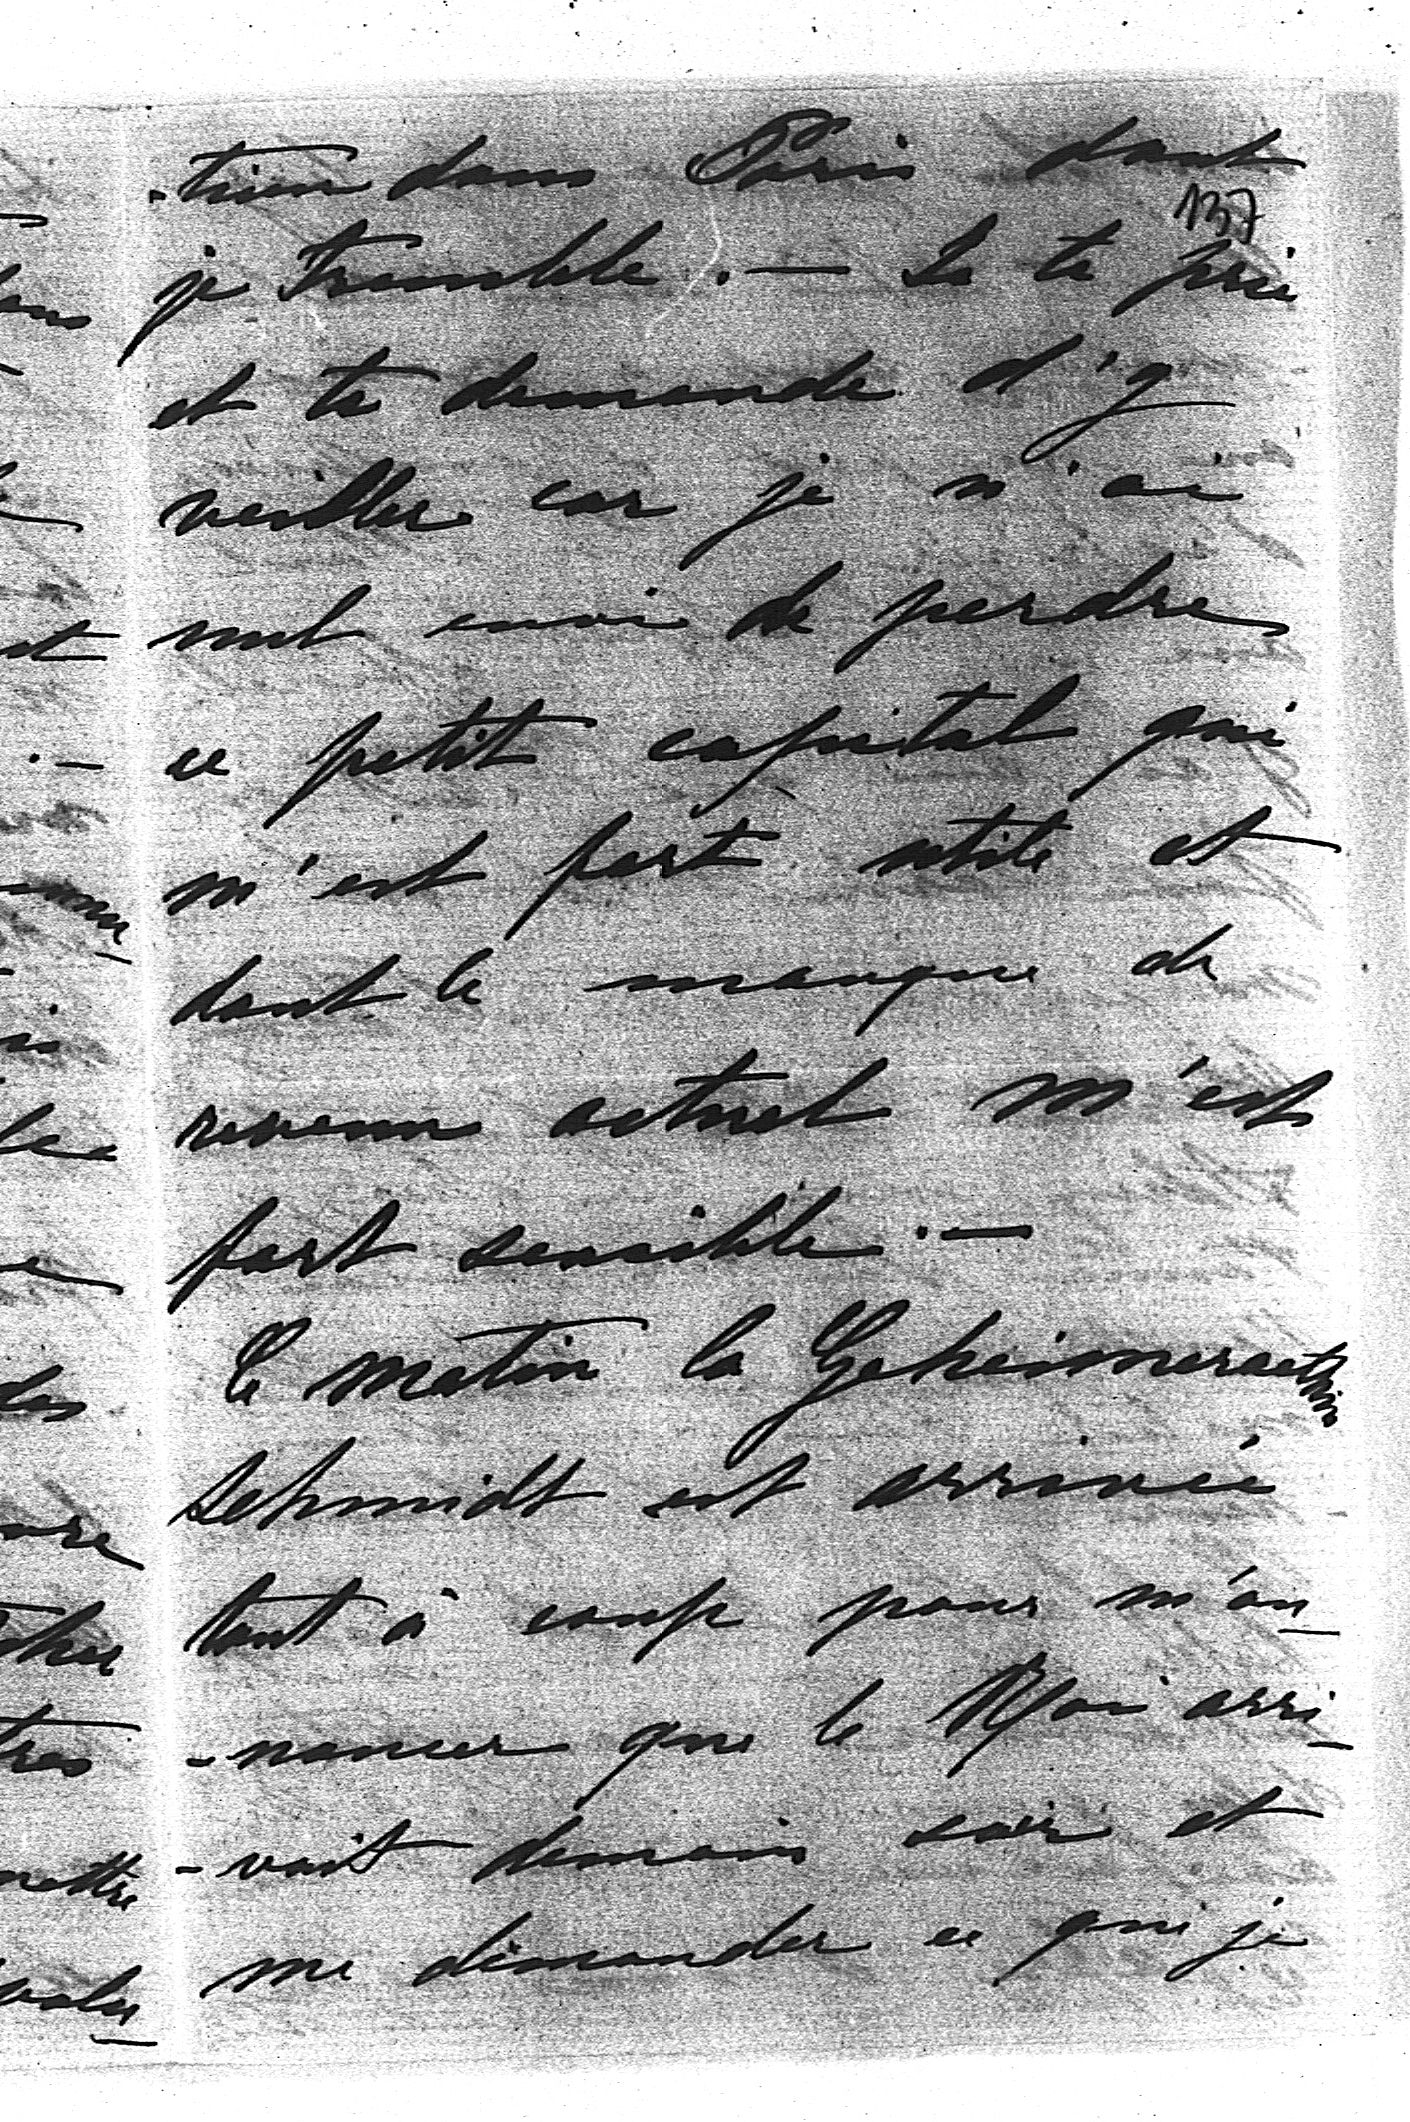 -tien dans Paris dont
137
je tremble. — Je te prie
et te demande d'y
veiller car je n'ai
nul envie de perdre
ce petit capital qui
m'est fort utile et
dont le manque de
revenu actuel m'est
fort sensible. —
Ce matin la Geheimeraethin
Schmidt est arrivée
tout à coup pour m'an-
-noncer que le Roi arri-
-vait demain soir et
me demander ce que je